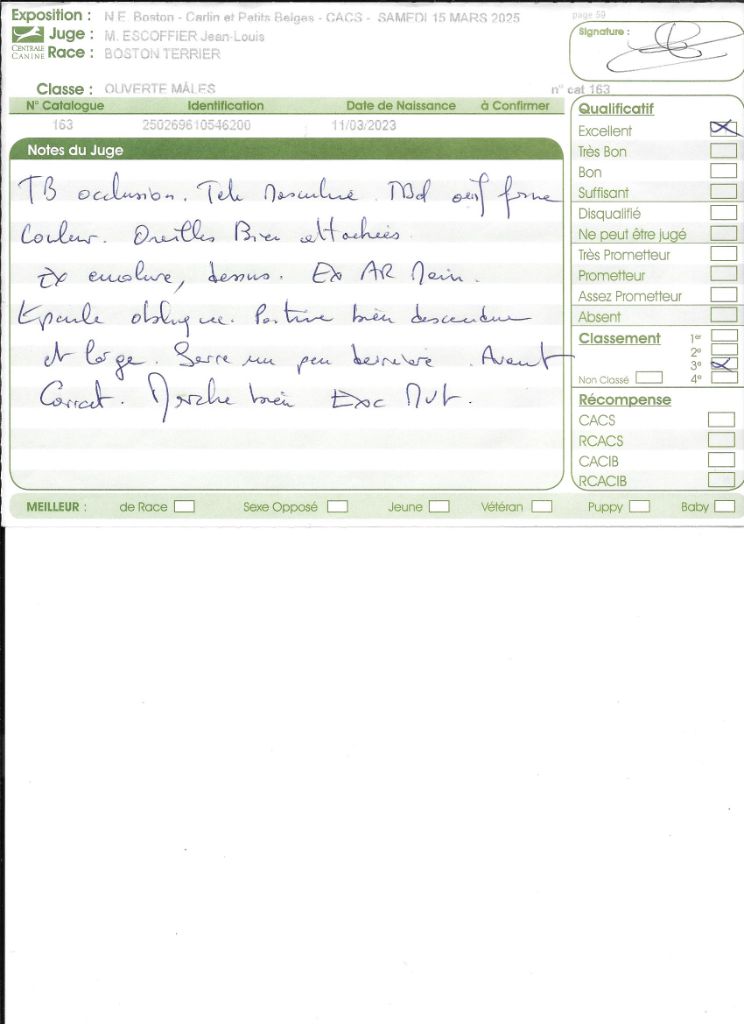 Exposition : N.E. Boston - Carlin et Petits Belges - CACS - SAMEDI 15 MARS 2025
page 59
CENTRALE CANINE
Juge : M. ESCOFFIER Jean-Louis
Race : BOSTON TERRIER
Signature :
Classe : OUVERTE MÂLES
n° cat 163
N° Catalogue Identification Date de Naissance à Confirmer
163 250269610546200 11/03/2023
Notes du Juge
TB occlusion. Tete Masculine. oeil forme
Couleur. Oreilles Bien attachées.
Ex encolure, dessus. Ex AR Main.
Epaule oblique. Poitrine bien descendue
et large. Serre un peu derrière. Avant
Correct. Marche bien Exc Mvt.
Qualificatif
Excellent
Très Bon
Bon
Suffisant
Disqualifié
Ne peut être jugé
Très Prometteur
Prometteur
Assez Prometteur
Absent
Classement 1er
2e
3e
Non Classé 4e
Récompense
CACS
RCACS
CACIB
RCACIB
MEILLEUR : de Race Sexe Opposé Jeune Vétéran Puppy Baby